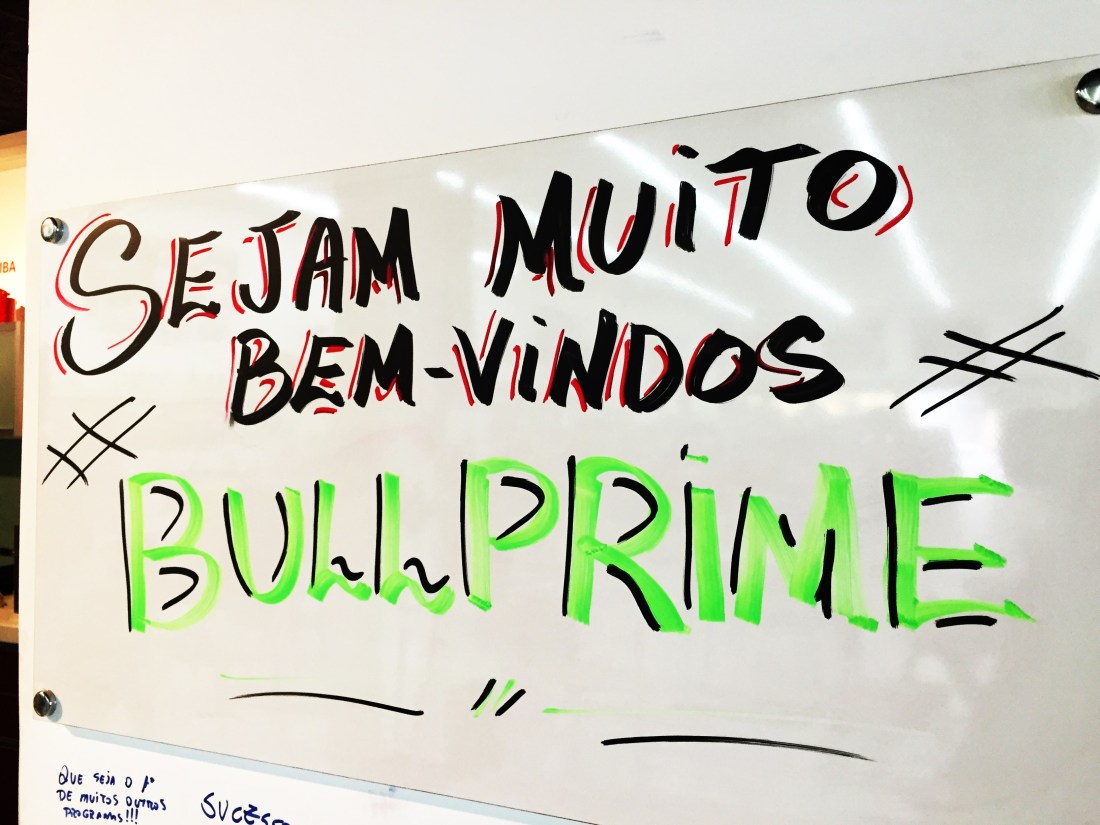 SEJAM MUITO
BEM-VINDOS
#
#
BULLPRIME
QUE SEJA O 1º
DE MUITOS OUTROS
PROGRAMAS!!!